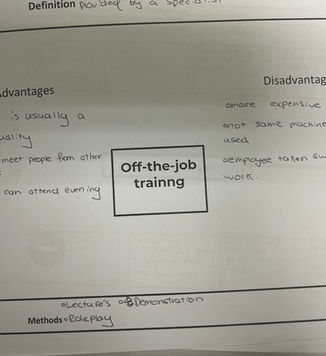 Definition provided by a specialist
Advantages
is usually a
uality
meet people from other
can attend evening
Off-the-job
trainng
Disadvantag
more expensive
not same machine
used
employee taken aw
work.
Lecture's Demonstration
Methods Roleplay